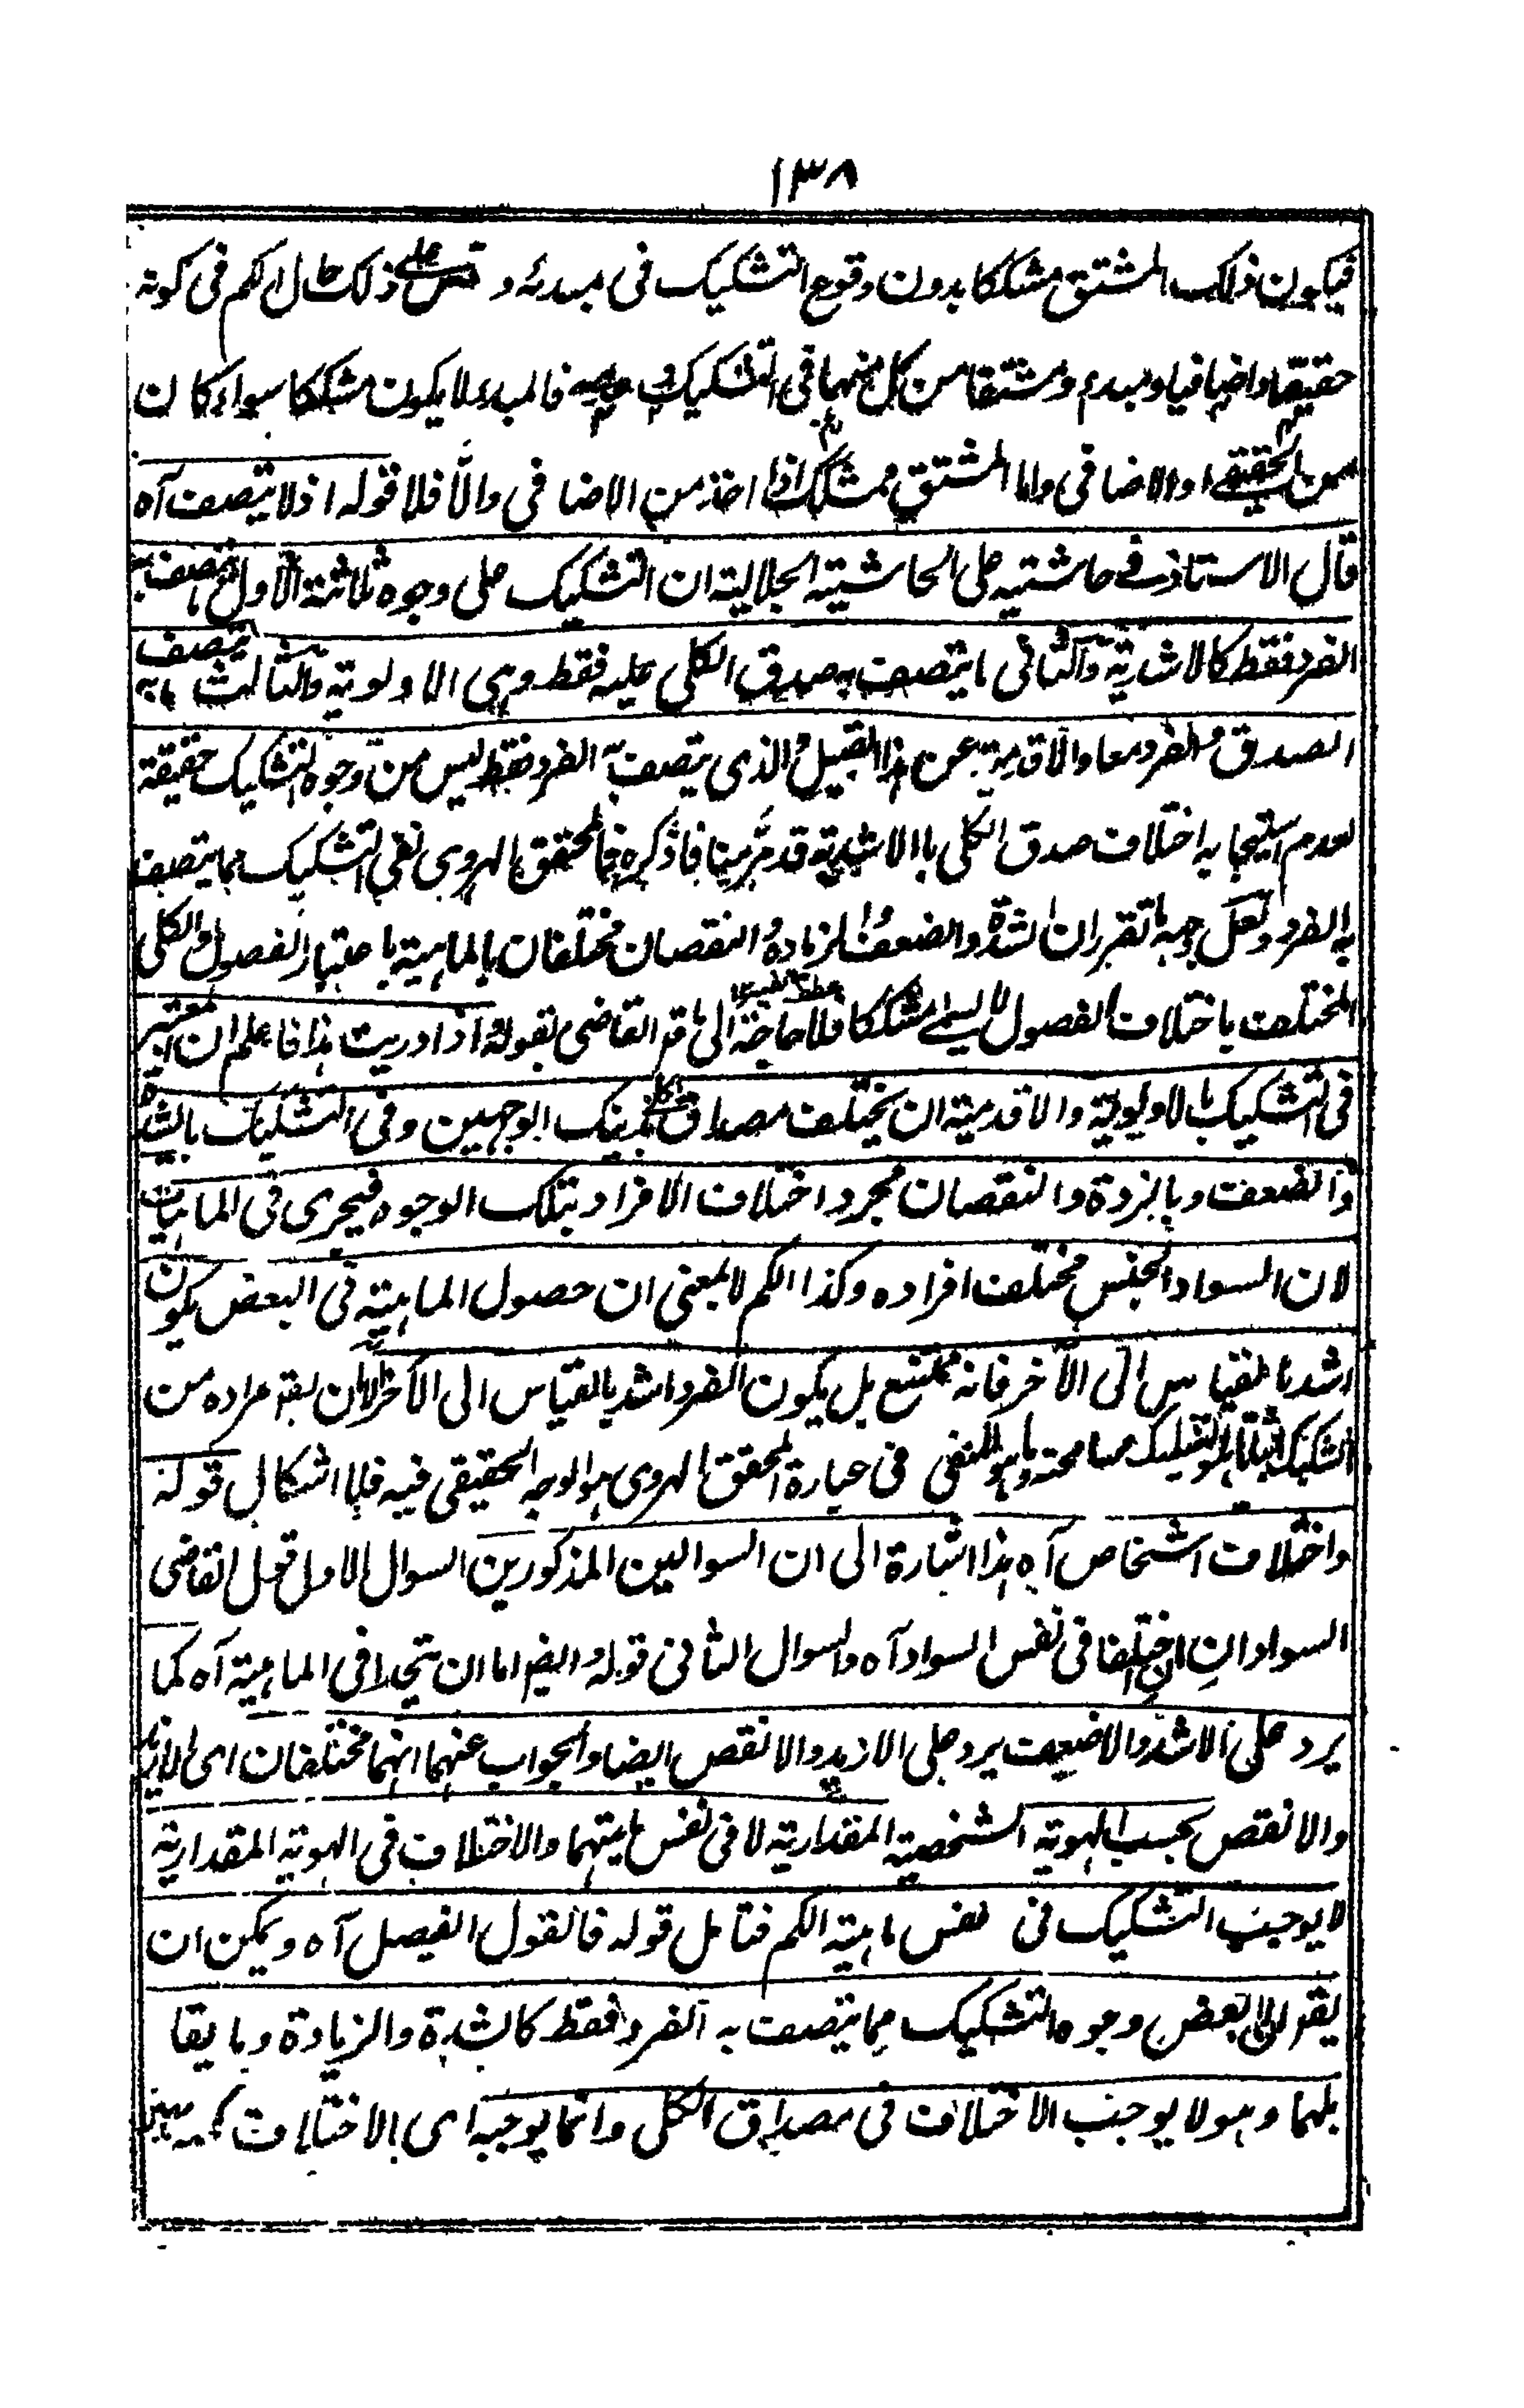 ١٣٨
فيكون ذلك المشتق مشككا بدون وقوع التشكيك فى مبدئه و قس على ذلك حال الكم فى كونه
حقيقيا واضافيا ومبدء ومشتقا من كل منهما فى التشكيك و عدمه فالمبدء لا يكون مشككا سواء كان
من الحقيقى او الاضافى واما المشتق فمشكك اذا اخذ من الاضافى والا فلا قوله اذ لا يتصف آه
قال الاستاذ فى حاشتيه على الحاشية الجلالية ان التشكيك على وجوه ثلثة الاول ما يتصف به
الفرد فقط كالاشدية والثانى ما يتصف به صدق الكلى عليه فقط وهى الاولوية والثالث ما يتصف به
الصدق والفرد معا والاقدمية عن هذا القبيل والذى يتصف به الفرد فقط ليس من وجوه التشكيك حقيقة
لعدم استيجابه اختلاف صدق الكلى بالاشدية قد مر منا فاذكره فالمحقق الهروى نفى التشكيك مما يتصف
به الفرد ولعل وجهه ما تقرر ان الشدة والضعف والزيادة والنقصان مختلفان بالماهية باعتبار الفصول والكلى
المختلف باختلاف الفصول لا يسمى مشككا فلا حاجة الى ما قد القاضى بقوله اذا دريت هذا فاعلم ان المعتبر
فى التشكيك بالاولوية والاقدمية ان يختلف مصداق الكلى بذينك الوجهين وفى التشكيك بالشدة
والضعف وبالزيدة والنقصان مجرد اختلاف الافراد بتلك الوجوه فيجرى فى الماهيات
لان السواد الجنس مختلف افراده وكذا الكم لا بمعنى ان حصول الماهية فى البعض يكون
اشد بالقياس الى الآخر فانه ممتنع بل يكون الفرد اشد بالقياس الى الآخر الا ان يقة مراده من
التشكيك مسامحة وما هو المنفى فى عبارة المحقق الهروى هو الوجه الحقيقى فيه فلا اشكال قوله
واختلاف اشخاص آه هذا اشارة الى ان السوالين المذكورين السوال الاول قول القاضى
السوادان ان اختلفا فى نفس السواد آه والسوال الثانى قوله وايضا اما ان يتحدا فى الماهية آه كما
يرد على الاشد والاضعف يرد على الازيد والانقص ايضا والجواب عنهما انهما مختلفان اى الازيد
والانقص بحسب الهوية الشخصية المقدارية لا فى نفس ماهيتهما والاختلاف فى الهوية المقدارية
لا يوجب التشكيك فى نفس ماهية الكم فتامل قوله فالقول الفيصل آه ويمكن ان
يقر الى بعض وجوه التشكيك مما يتصف به الفرد فقط كالشدة والزيادة وما يقا
بلهما وهو لا يوجب الاختلاف فى مصداق الكلى وانما يوجبه اى الاختلاف